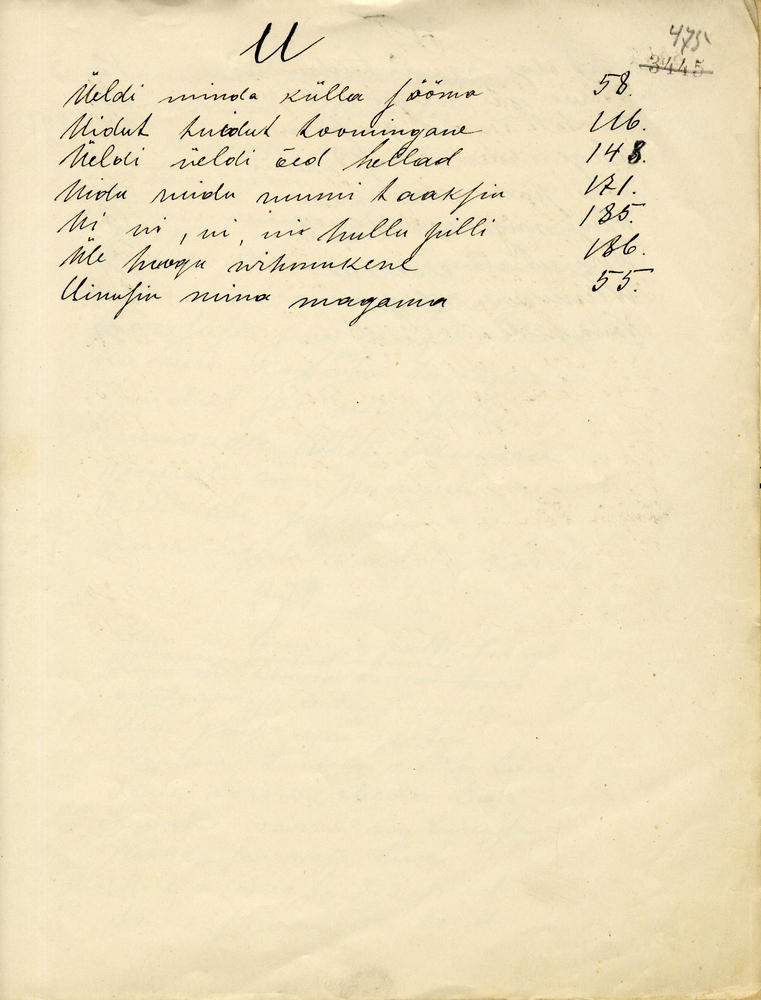 U
475
3445
Üeldi minda külla sööma 58.
Uidut tuidut toomingane 116.
Üeldi üeldi õed hellad 148.
Uidu uidu mumi taaksin 171.
Ui ui, ui, uio hullu pilli 185.
Üle hoogu wihmukene 186.
Uinusin mina magama 55.